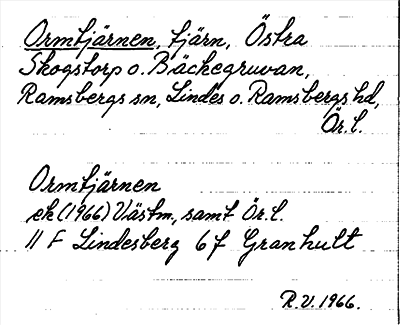 Ormtjärnen, tjärn, Östra
Skogstorp o. Bäckegruvan,
Ramsbergs sn, Lindes o. Ramsbergs hd,
Ör. l.
Ormtjärnen
ek (1966) Västm, samt Ör. l.
11 F Lindesberg 6 f Granhult
R.V. 1966.